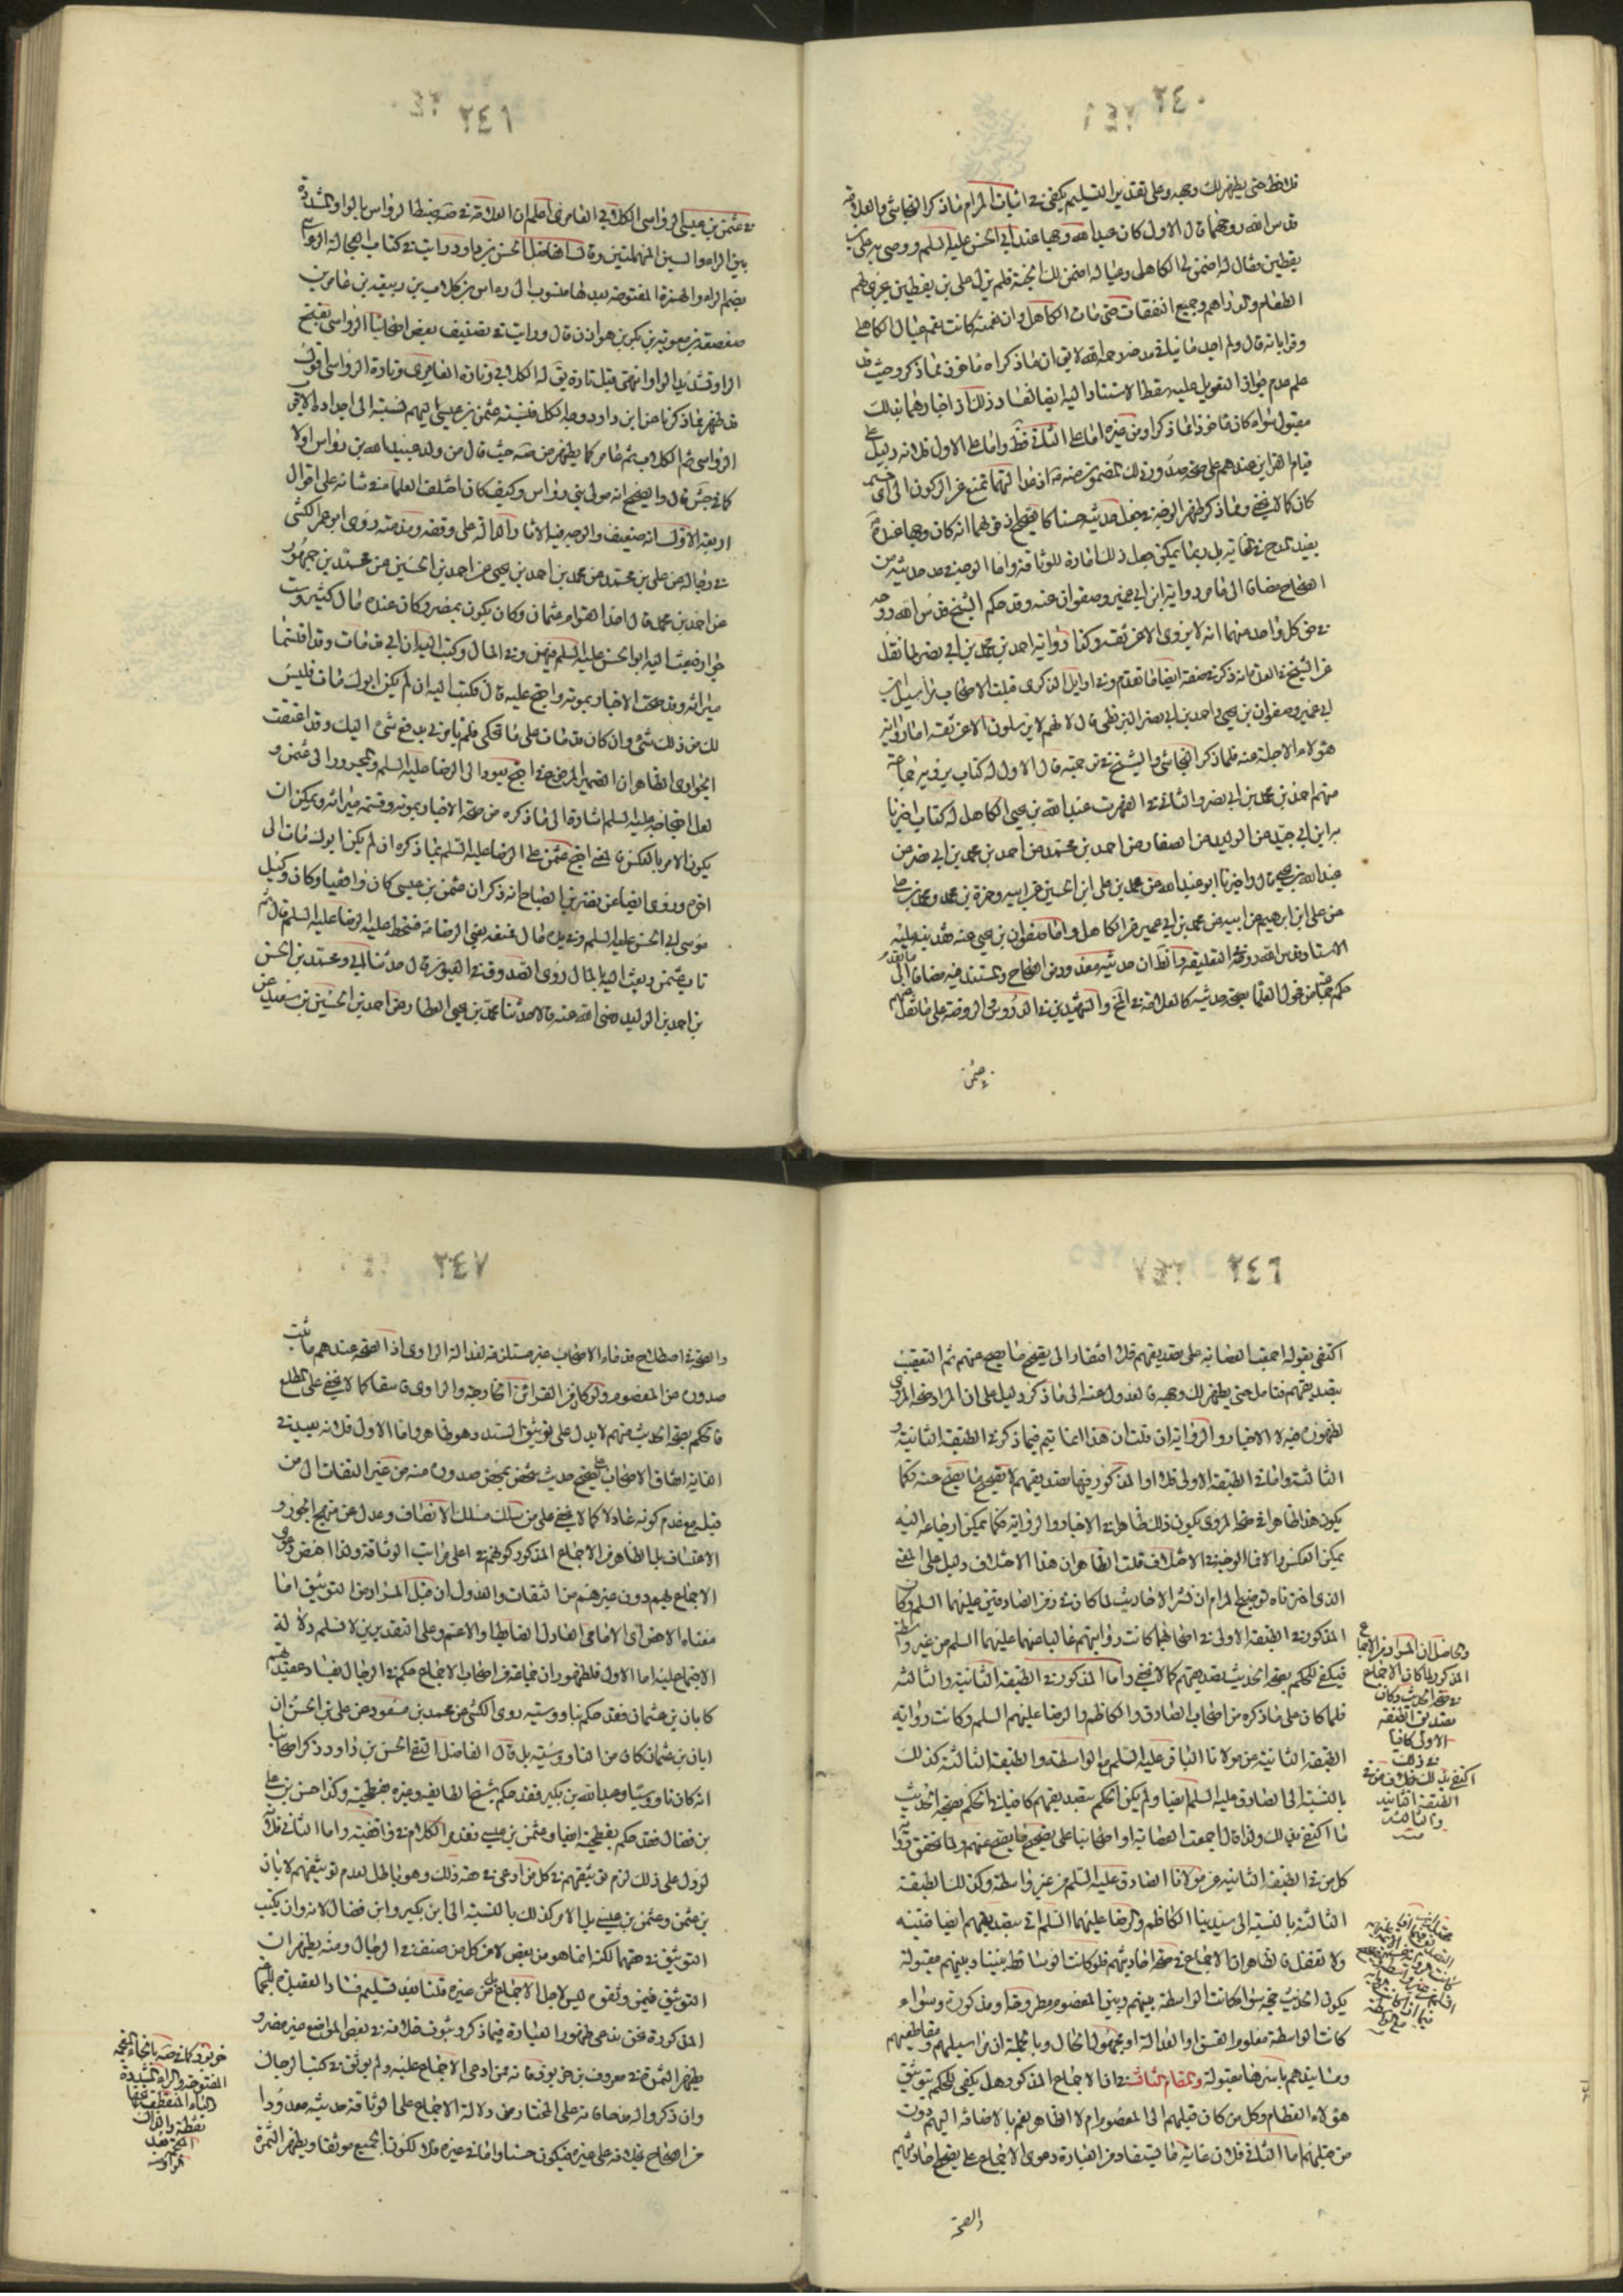 ٢٤٠
فلاحظ حتى يظهر لك وجهه وعلى تقدير التسليم يكفي في اثبات المرام ماذكر النجاشي والعلامة
قدس الله روحهما قال الاول كان عبدالله وجها عند ابي الحسن عليه السلم ووصى به علي بن
يقطين فقال له اضمن لي الكاهلي وعياله اضمن لك الجنة فلم يزل علي بن يقطين يجري لهم
الطعام والدراهم وجميع النفقات حتى مات الكاهلي وان نعمته كانت تعم عيال الكاهلي
وقراباته قال ولم اجد ما ينافي مدحه رحمه الله لا يق ان ماذكراه ماخوذ مماذكر وحيث قد
علم عدم جواز التعويل عليه سقط الاستناد اليه ايضا لفساد ذلك اذ اخبارهما بذلك
مقبول سواء كان ماخوذا مما ذكر او من غيره اما على الثاني فظ واما على الاول فلانه دليل على
قيام القراين عندهم على صحة صدور ذلك
كان كما لا يخفى ومماذكر ظهر الوجه في جعل حديثه حسنا كالصحيح اذ قولهما انه كان وجها عنده
يفيد المدح في نهايته بل ربما يمكن جعل ذلك امارة للوثاقة واما الوجه في عد حديثه من
الصحاح مضافا الى مامر رواية ابن ابي عمير وصفوان عنه وقد حكم الشيخ قدس الله روحه
في حق كل واحد منهما انه لا يروي الا عن ثقة وكذا رواية احمد بن محمد بن ابي نصر لما نقل
عن الشيخ في العدة انه ذكر في حقه ايضا ماتقدم وفي اوايل الذكرى قبلت الاصحاب مراسيل ابن
ابي عمير وصفوان بن يحيى واحمد بن ابي نصر البزنطي قال لانهم لا يرسلون الا عن ثقة اما رواية
هؤلاء الاجلة عنه فلما ذكر النجاشي والشيخ في ترجمته قال الاول له كتاب يرويه جماعة
منهم احمد بن محمد بن ابي نصر والثاني في الفهرست عبدالله بن يحيى الكاهلي له كتاب اخبرنا
به ابن ابي جيد عن ابن الوليد عن الصفار عن احمد بن محمد عن احمد بن محمد بن ابي نصر عن
عبدالله بن يحيى قال واخبرنا ابو عبدالله عن محمد بن علي ابن الحسين عن ابيه وحمزة بن محمد ومحمد بن علي
عن علي ابن ابرهيم عن ابيه عن محمد بن ابي عمير عن الكاهلي واما صفوان بن يحيى عنه فقد نبه عليه
الاستاد قدس الله روحه في التعليقة فالظ ان حديثه معدود من الصحاح والمستند فيه مضافا الى ماتقدم
حكم جماعة من فحول العلما بصحة حديثه كالعلامة في المخ والشهيدين في الدروس والروضة على مانقل عنهم
في عثمن
٢٤١
في عثمن بن عيسى الرواسي الكلابي العامري اعلم ان العلامة في صه ضبط الرواس بالواو المشددة
بين الراء والسين المهملتين وقال الفاضل الحسن بن داود رايت في كتاب الرجال الرءاسي
بضم الراء والهمزة المفتوحة بعدها منسوب الى رءاس بن كلاب بن ربيعة بن عامر بن
صعصعة بن معوية بن بكر بن هوازن قال ورايت في تصنيف بعض اصحابنا الرواسي بفتح
الراء وتشديد الواو انتهى فيق تارة يق له الكلابي وتارة العامري وتارة الرواسي اقول
قد ظهر مماذكرنا عن ابن داود وجه الكل فنسبة عثمن بن عيسى اليهم نسبة الى اجداده الاقرب
الرواسي ثم الكلاب ثم عامر كما يظهر من صه حيث قال من ولد عبيد الله بن رواس اولا
كما في جش قال والصحيح انه مولى بني رواس وكيف كان اختلف العلما في شانه على اقوال
اربعة الاول انه ضعيف والوجه فيه الاثار الدالة على وقفه ومذمته روى ابو عمر الكشي
في رجاله عن علي بن محمد عن محمد بن احمد بن يحيى عن احمد بن الحسين عن محمد بن جمهور
عن احمد بن محمد قال احد القوام عثمان وكان يكون بمصر وكان عنده مال كثير وست
جوار فبعث اليه ابو الحسن عليه السلم فيهن وفي المال وكتب اليه ان ابي قد مات وقد اقتسمنا
ميراثه وقد صحت الاخبار بموته واحتج عليه قال فكتب اليه ان لم يكن ابوك مات فليس
لك من ذلك شئ وان كان قد مات على ماتحكي فلم يامرني بدفع شئ اليك وقد اعتقت
الجواري الظاهر ان الضمير المرفوع في احتج يعود الى الرضا عليه السلم والمجرور الى عثمن و
لعل احتجاجه عليه السلم اشارة الى ماذكره من صحة الاخبار بموته وقسمة ميراثه ويمكن ان
يكون الامر بالعكس فالمعنى احتج عثمن على الرضا عليه السلم بما ذكره ان لم يكن ابوك مات الى
اخره وروى ايضا عن نصر بن الصباح انه ذكر ان عثمن بن عيسى كان واقفيا وكان وكيل
موسى ابي الحسن عليه السلم وفي يده مال فمنعه يعني الرضا منه فسخط عليه الرضا عليه السلم قال ثم
تاب عثمن وبعث اليه بالمال روى الصدوق في العيون قال حدثنا ابي ومحمد بن الحسن
بن احمد بن الوليد رضي الله عنه قالا حدثنا محمد بن يحيى العطار عن احمد بن الحسين بن سعيد عن
٢٤٦
اكتفى بقوله اجمعت العصابة على تصديقهم فلا افتقار الى تصحيح مايصح عنهم ثم التعقيب
بتصديقهم فتامل حتى يظهر لك وجهه فالعدول عنه الى ماذكر دليل على ان المراد صحة المروي
لظهوره فيه لا الاخبار والرواية ان قلت ان هذا انما يتم فيما ذكر في الطبقة الثانية و
الثالثة واما في الطبقة الاولى فلا اذ المذكور فيها تصديقهم لا تصحيح مايصح عنه فكما
يكون هذا ظاهرا في صحة المروي يكون ذلك ظاهرا في الاخبار والرواية فكما يمكن ارجاعه اليه
يمكن العكس والا فما الوجه في الاختلاف قلت الظاهر ان هذا الاختلاف دليل على المعنى
الذي اخترناه توضيح المرام ان نشر الاحاديث لما كان في زمن الصادقين عليهما السلم وكان
المذكور في الطبقة الاولى من اصحابهما كانت روايتهم غالبا عنهما عليهما السلم من غير واسطة
فيكفي للحكم بصحة الحديث تصديقهم كما لا يخفى واما المذكور في الطبقة الثانية والثالثة
فلما كان على ماذكره من اصحاب الصادق والكاظم والرضا عليهم السلم وكانت رواية
الطبقة الثانية عن مولانا الباقر عليه السلم مع الواسطة والطبقة الثالثة كذلك
بالنسبة الى الصادق عليه السلم ايضا ولم يكن الحكم بتصديقهم كافيا في الحكم بصحة الحديث
ما اكتفى بذلك ولذا قال اجمعت العصابة او اصحابنا على تصحيح مايصح عنهم ولما تحقق رواية
كل من في الطبقة الثانية عن مولانا الصادق عليه السلم من غير واسطة وكذلك الطبقة
الثالثة بالنسبة الى سيدينا الكاظم والرضا عليهما السلم اتى بتصديقهم ايضا فتنبه
ولا تغفل فالظاهر ان الاجماع في صحة احاديثهم فلو كانت الوسائط بيننا وبينهم مقبولة
يكون الحديث حجة سواء كانت الواسطة بينهم وبين المعصوم مطروحة او مذكورة وسواء
كانت الواسطة معلوم الفسق او العدالة او مجهول الحال وبالجملة ان مراسيلهم ومقاطيعهم
ومسانيدهم باسرها مقبولة والمقام الثالث في ان الاجماع المذكور هل يكفي للحكم بتوثيق
هؤلاء العظام وكل من كان قبلهم الى المعصوم ام لا الظاهر نعم بالاضافة اليهم دون
من قبلهم اما الثاني فلان غاية مايستفاد من العبارة دعوى الاجماع على تصحيح احاديثهم
والحاصل ان المراد من الاجماع
المذكور لما كان الاجماع
في صحة الحديث وكان
تصديق الطبقة
الاولى كافيا
في ذلك
اكتفى بذلك بخلافه في
الطبقة الثانية
والثالثة
منه
والصحة
٢٤٧
والصحة في اصطلاح قدماء الاصحاب غير مستلزمة لعدالة الراوي اذ الصحة عندهم ماثبت
صدوره عن المعصوم ولو كان من القرائن الخارجة والراوي فاسقا كما لا يخفى على المطلع
فالحكم بصحة الحديث منهم لا يدل على توثيق السند وهو ظاهر واما الاول فلانه بعيد في
الغاية اتفاق الاصحاب على تصحيح حديث شخص بمحض صدوره منه من غير التفات الى من
قبله مع عدم كونه عادلا كما لا يخفى على من سلك مسلك الانصاف وعدل عن منهج الجور و
الاعتساف بل الظاهر من الاجماع المذكور كونهم في اعلى مراتب الوثاقة ولذا اختص دعوى
الاجماع بهم دون غيرهم من الثقات والعدول ان قيل المراد من التوثيق اما
معناه الاخص اي الامامي العادل الضابط او الاعم وعلى التقديرين لا نسلم دلالة
الاجماع عليه اما الاول فلظهور ان جماعة من اصحاب الاجماع حكم في الرجال بفساد عقيدتهم
كابان بن عثمان فقد حكم بناووسيته روى الكشي عن محمد بن مسعود عن علي بن الحسن ان
ابان بن عثمان كان من الناووسية بل قال الفاضل التقي الحسن بن داود ذكر اصحابنا
انه كان ناووسيا وعبدالله بن بكير فقد حكم شيخ الطايفة وغيره بفطحيته وكذا حسن بن علي
بن فضال فقد حكم بفطحيته ايضا وعثمن بن عيسى تقدم الكلام في واقفيته واما الثاني فلانه
لو دل على ذلك لزم توثيقهم في كل من ادعى في حقه ذلك وهو باطل لعدم توثيقهم لابان
بن عثمن وعثمن بن عيسى بل الامر كذلك بالنسبة الى ابن بكير وابن فضال لانه وان يكتب
التوثيق في حقهما لكنه انما هو من بعض لا من كل من صنف في الرجال ومنه يظهر ان
التوثيق فيمن وثقوه ليس لاجل الاجماع بل من غيره قلنا بعد تسليم فساد العقيدة للجماعة
المذكورة نحن ندعي ظهور العبارة فيماذكر وثبوت خلافه في بعض المواضع غير مضر و
يظهر الثمرة في معروف بن خربوذ فانه ممن ادعى الاجماع عليه ولم يوثق في كتب الرجال
وان ذكروا له مدحا فانه على المختار من دلالة الاجماع على الوثاقة حديثه معدودا
من الصحاح بخلافه على غيره فيكون حسنا واما في غيره فلا لكون الجميع موثقا ويظهر الثمرة
خربوذ كما في صه بالخاء المعجمة
المفتوحة والراء المشددة
والباء المنقطة تحتها
نقطة والذال
المعجمة بعد
الواو منه